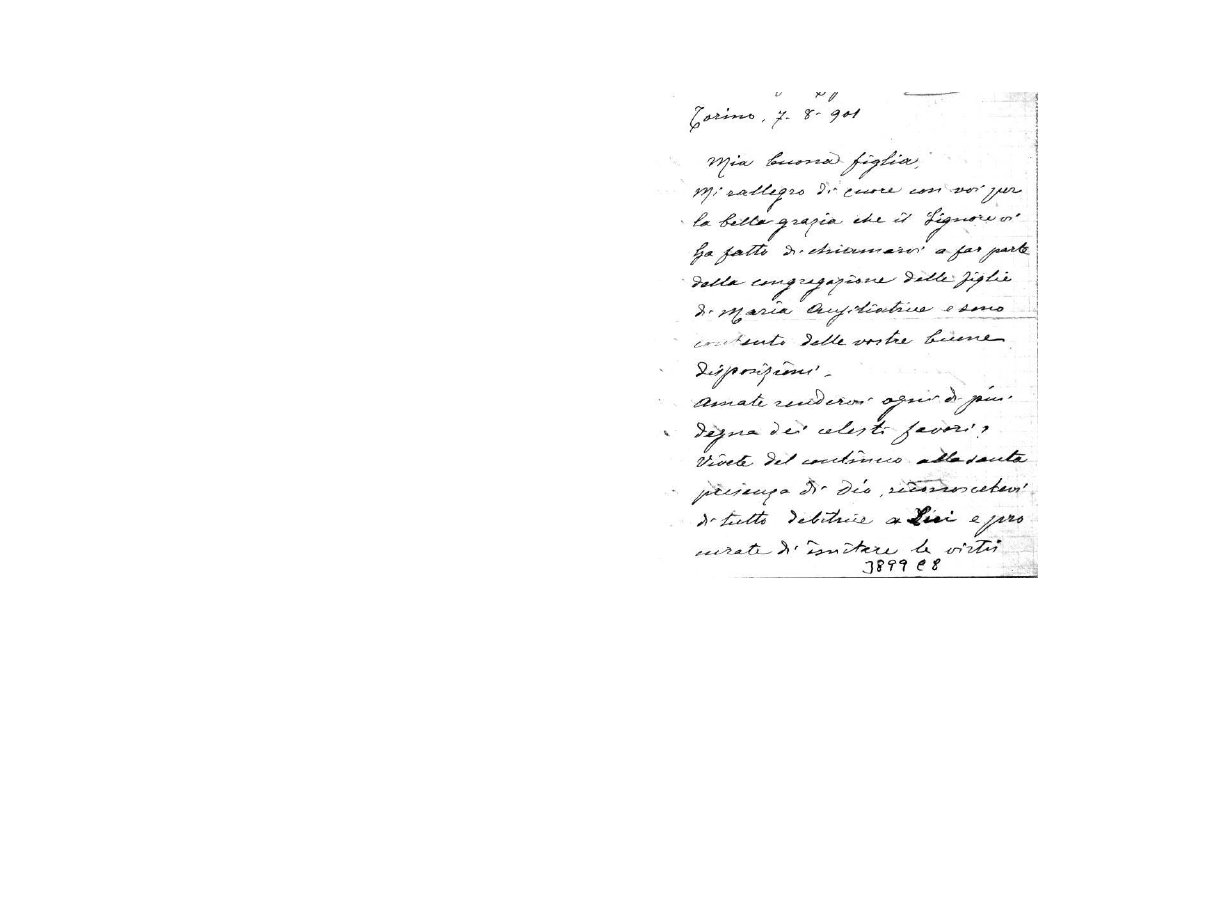 Torino, 7-8-901
Mia buona figlia,
Mi rallegro di cuore con voi per
la bella grazia che il Signore vi
ha fatto di chiamarvi a far parte
della congregazione delle figlie
di Maria Ausiliatrice e sono
contento delle vostre buone
disposizioni.
Amate rendervi ogni dì più
degna dei celesti favori?
Vivete del continuo alla santa
presenza di Dio, riconoscetevi
di tutto debitrice a Lui e pro
curate di imitare le virtù
3899 C 8